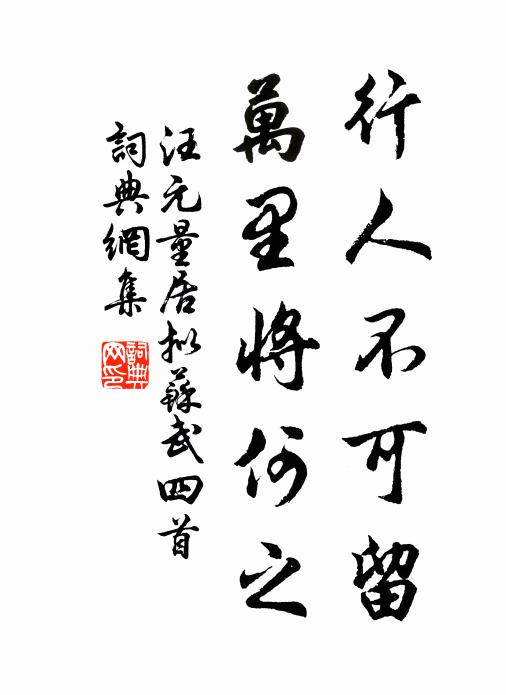 行人不可留
萬里將何之
汪元量居拟蘇武四首
詞典網集
詞典网印